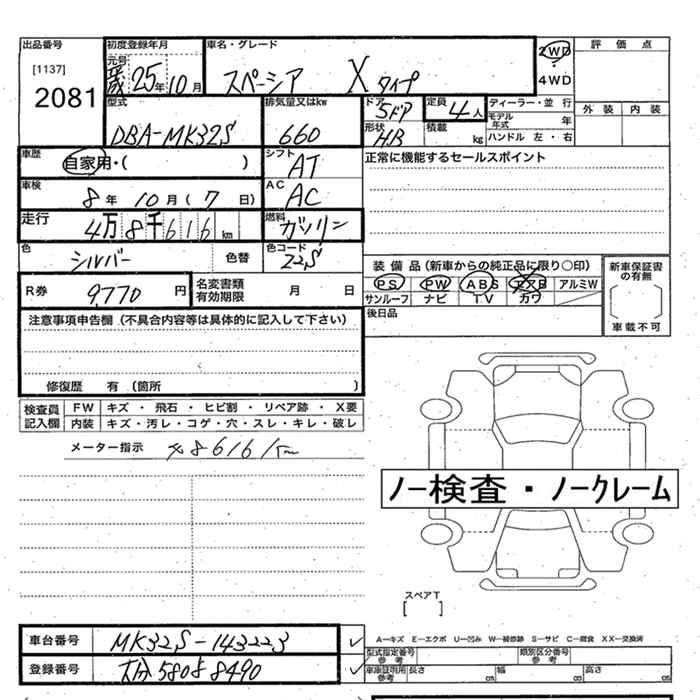 出品番号 初度登録年月 車名・グレード 2WD 評価点
[1137] 元号 25年10月 スペーシア X タイプ 4WD
2081 型式 排気量又はkw ドア 5ドア 定員 4人 ディーラー・並行 外装 内装
DBA-MK32S 660 形状 HB 積載 kg モデル年式 年
ハンドル 左・右
車歴 自家用・( ) シフト AT 正常に機能するセールスポイント
車検 8年10月(7日) AC AC
走行 4万8千616km 燃料 ガソリン
色 シルバー 色替 色コード Z2S 装備品(新車からの純正品に限り○印) 新車保証書の有無
R券 9,770円 名変書類有効期限 月 日 PS PW ABS エアB アルミW
サンルーフ ナビ TV カワ
車載不可
注意事項申告欄(不具合内容等は具体的に記入して下さい) 後日品
修復歴 有(箇所 )
検査員記入欄 FW キズ・飛石・ヒビ割・リペア跡・X要
内装 キズ・汚レ・コゲ・穴・スレ・キレ・破レ
メーター指示 48616km
ノー検査・ノークレーム
スペアT
[ ]
A―キズ E―エクボ U―凹み W―補修跡 S―サビ C―腐食 XX―交換済
車台番号 MK32S-143223 型式指定番号 参考 類別区分番号 参考
登録番号 大分580さ8490 車庫証明用 参考 長さ cm 幅 cm 高さ cm